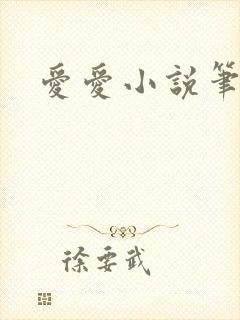 愛愛小說筆
徐要武